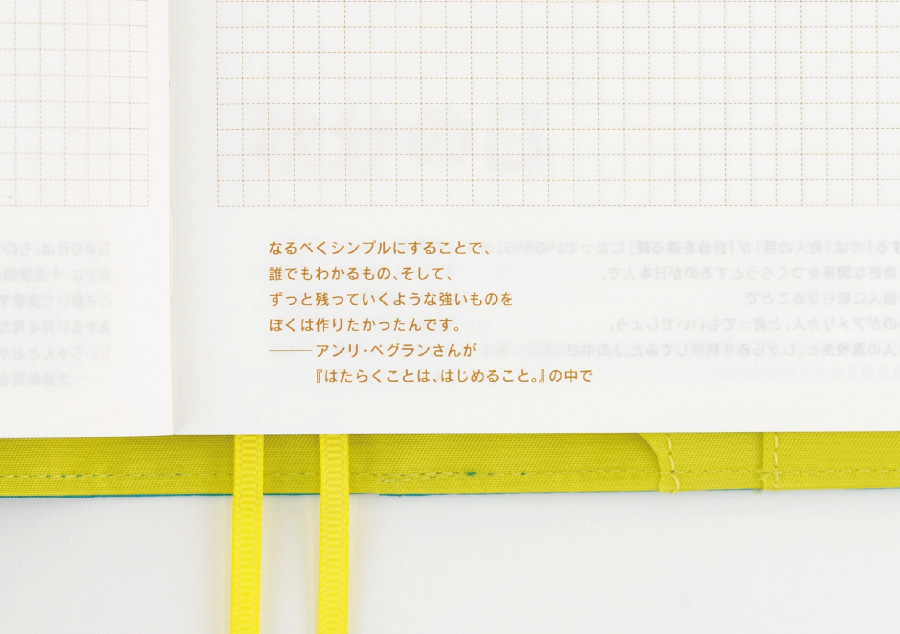 なるべくシンプルにすることで、
誰でもわかるもの、そして、
ずっと残っていくような強いものを
ぼくは作りたかったんです。
———アンリ・ベグランさんが
『はたらくことは、はじめること。』の中で